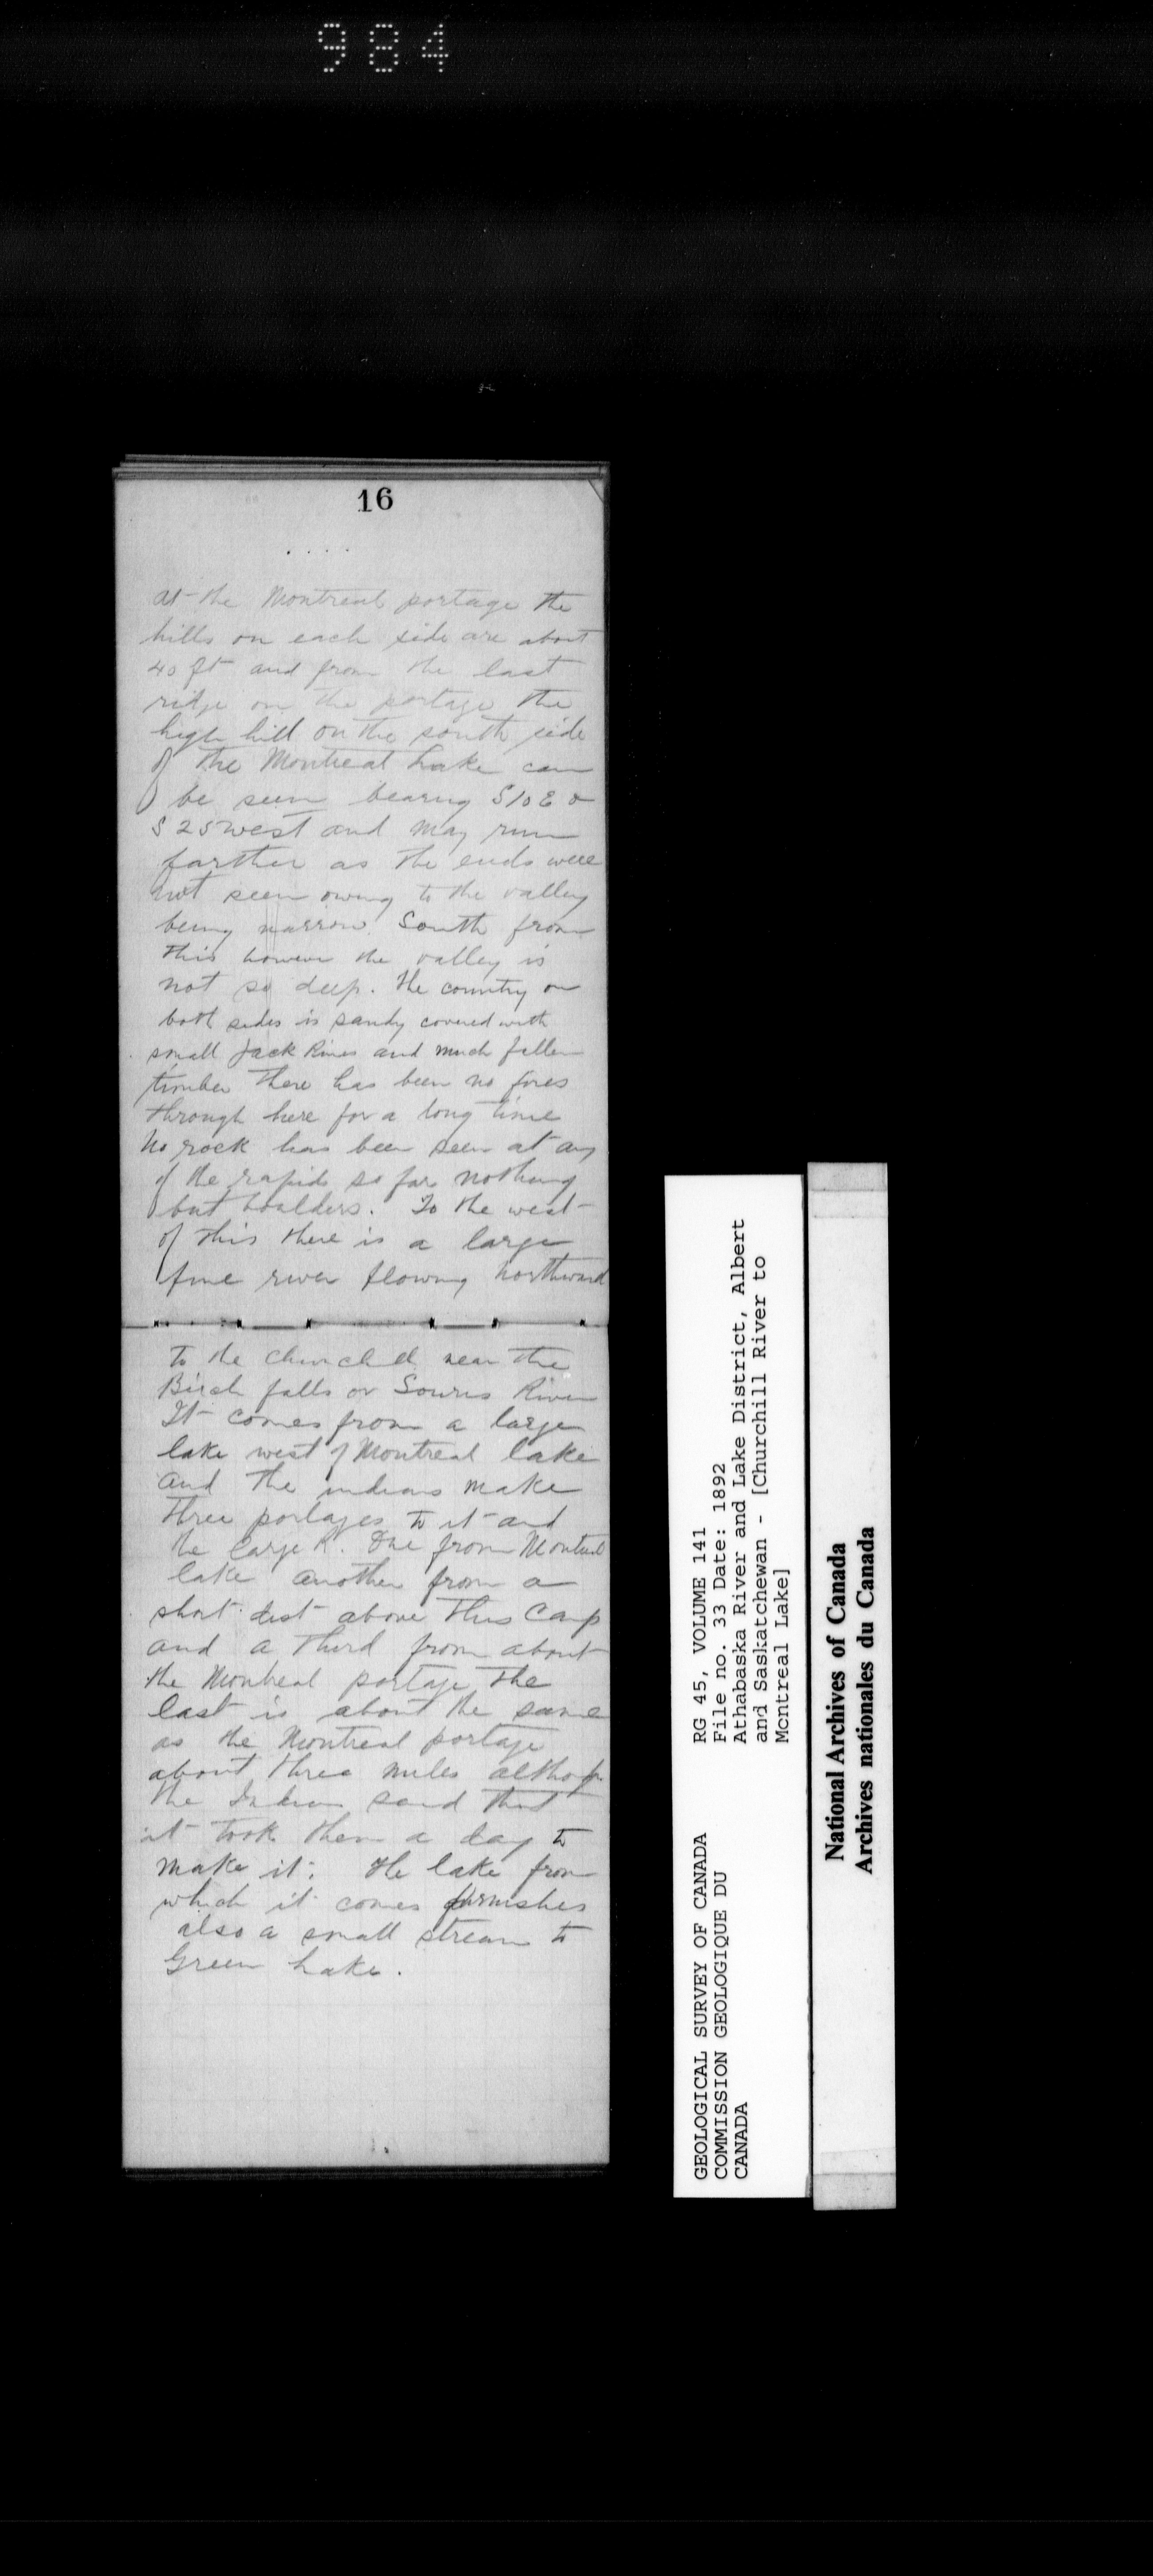 984
16
at the Montreal portage the
hills on each side are about
40 ft and from the last
ridge on the portage the
high hill on the south side
of the Montreal Lake can
be seen bearing S10E &
S25west and may run
farther as the ends were
not seen owing to the valley
being narrow. South from
this however the valley is
not so deep. The country on
both sides is sandy covered with
small Jack Pines and much fallen
timber There has been no fires
through here for a long time
No rock has been seen at any
of the rapids so far nothing
but boulders. To the west
of this there is a large
fine river flowing northward
to the Churchill near the
Birch falls or Souris River
It comes from a large
lake west of Montreal lake
and the indians make
three portages to it and
the large R. One from Montreal
lake another from a
short dist above this Camp
and a third from about
the Montreal portage The
last is about the same
as the Montreal portage
about three miles
the Indian said that
it took them a day to
make it. The lake from
which it comes furnishes
also a small stream to
Green Lake.
GEOLOGICAL SURVEY OF CANADA
COMMISSION GEOLOGIQUE DU
CANADA
RG 45, VOLUME 141
File no. 33 Date: 1892
Athabaska River and Lake District, Albert
and Saskatchewan - [Churchill River to
Montreal Lake]
National Archives of Canada
Archives nationales du Canada